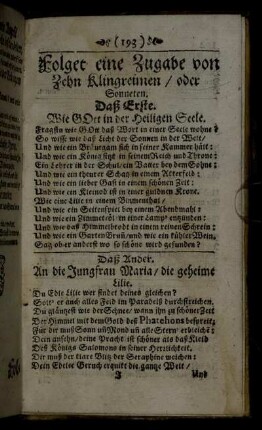 (193)
Folget eine Zugabe von
Zehn Klingreimen / oder
Sonneten.
Daß Erste.
Wie GOtt in der Heiligen Seele.
Fragstu wie GOtt daß Wort in einer Seele wohne?
So wisse wie daß Licht der Sonnen in der Welt /
Und wie ein Bräutgam sich in seiner Kammer hält:
Und wie ein König sitzt in seinem Reich und Throne:
Ein Lehrer in der Schul: ein Vater bey dem Sohne:
Und wie ein theurer Schatz in einem Ackerfeld:
Und wie ein lieber Gast in einem schönen Zelt:
Und wie ein Kleinod ist in einer guldnen Krone.
Wie eine Lilie in einem Blumenthal /
Und wie ein Seitenspiel bey einem Abendmahl:
Und wie ein Zimmetöl in einer Lamp entzunden:
Und wie daß Himmelbrodt in einem reinen Schrein:
Und wie ein Garten Brunn und wie ein kühler Wein.
Sag ob er anderst wo so schöne wird gefunden?
Daß Ander.
An die Jungfrau Maria / die geheime
Lilie.
Du Edle Lilie wer findet deines gleichen?
Solt' er auch alles Feld im Paradeiß durchstreichen.
Du gläntzest wie der Schnee / wann jhn zu schöner Zeit
Der Himmel mit dem Gold deß
Für der muß Sonn uñ Mond uñ alle Stern' erbleichē:
Dein ansehn / deine Pracht ist schöner als daß Kleid
Deß Königs Salomons in seiner Herrlichkeit.
Dir muß der klare Blitz der Seraphine weichen:
Dein Edeler Geruch erquikt die gantze Welt /
J
Und